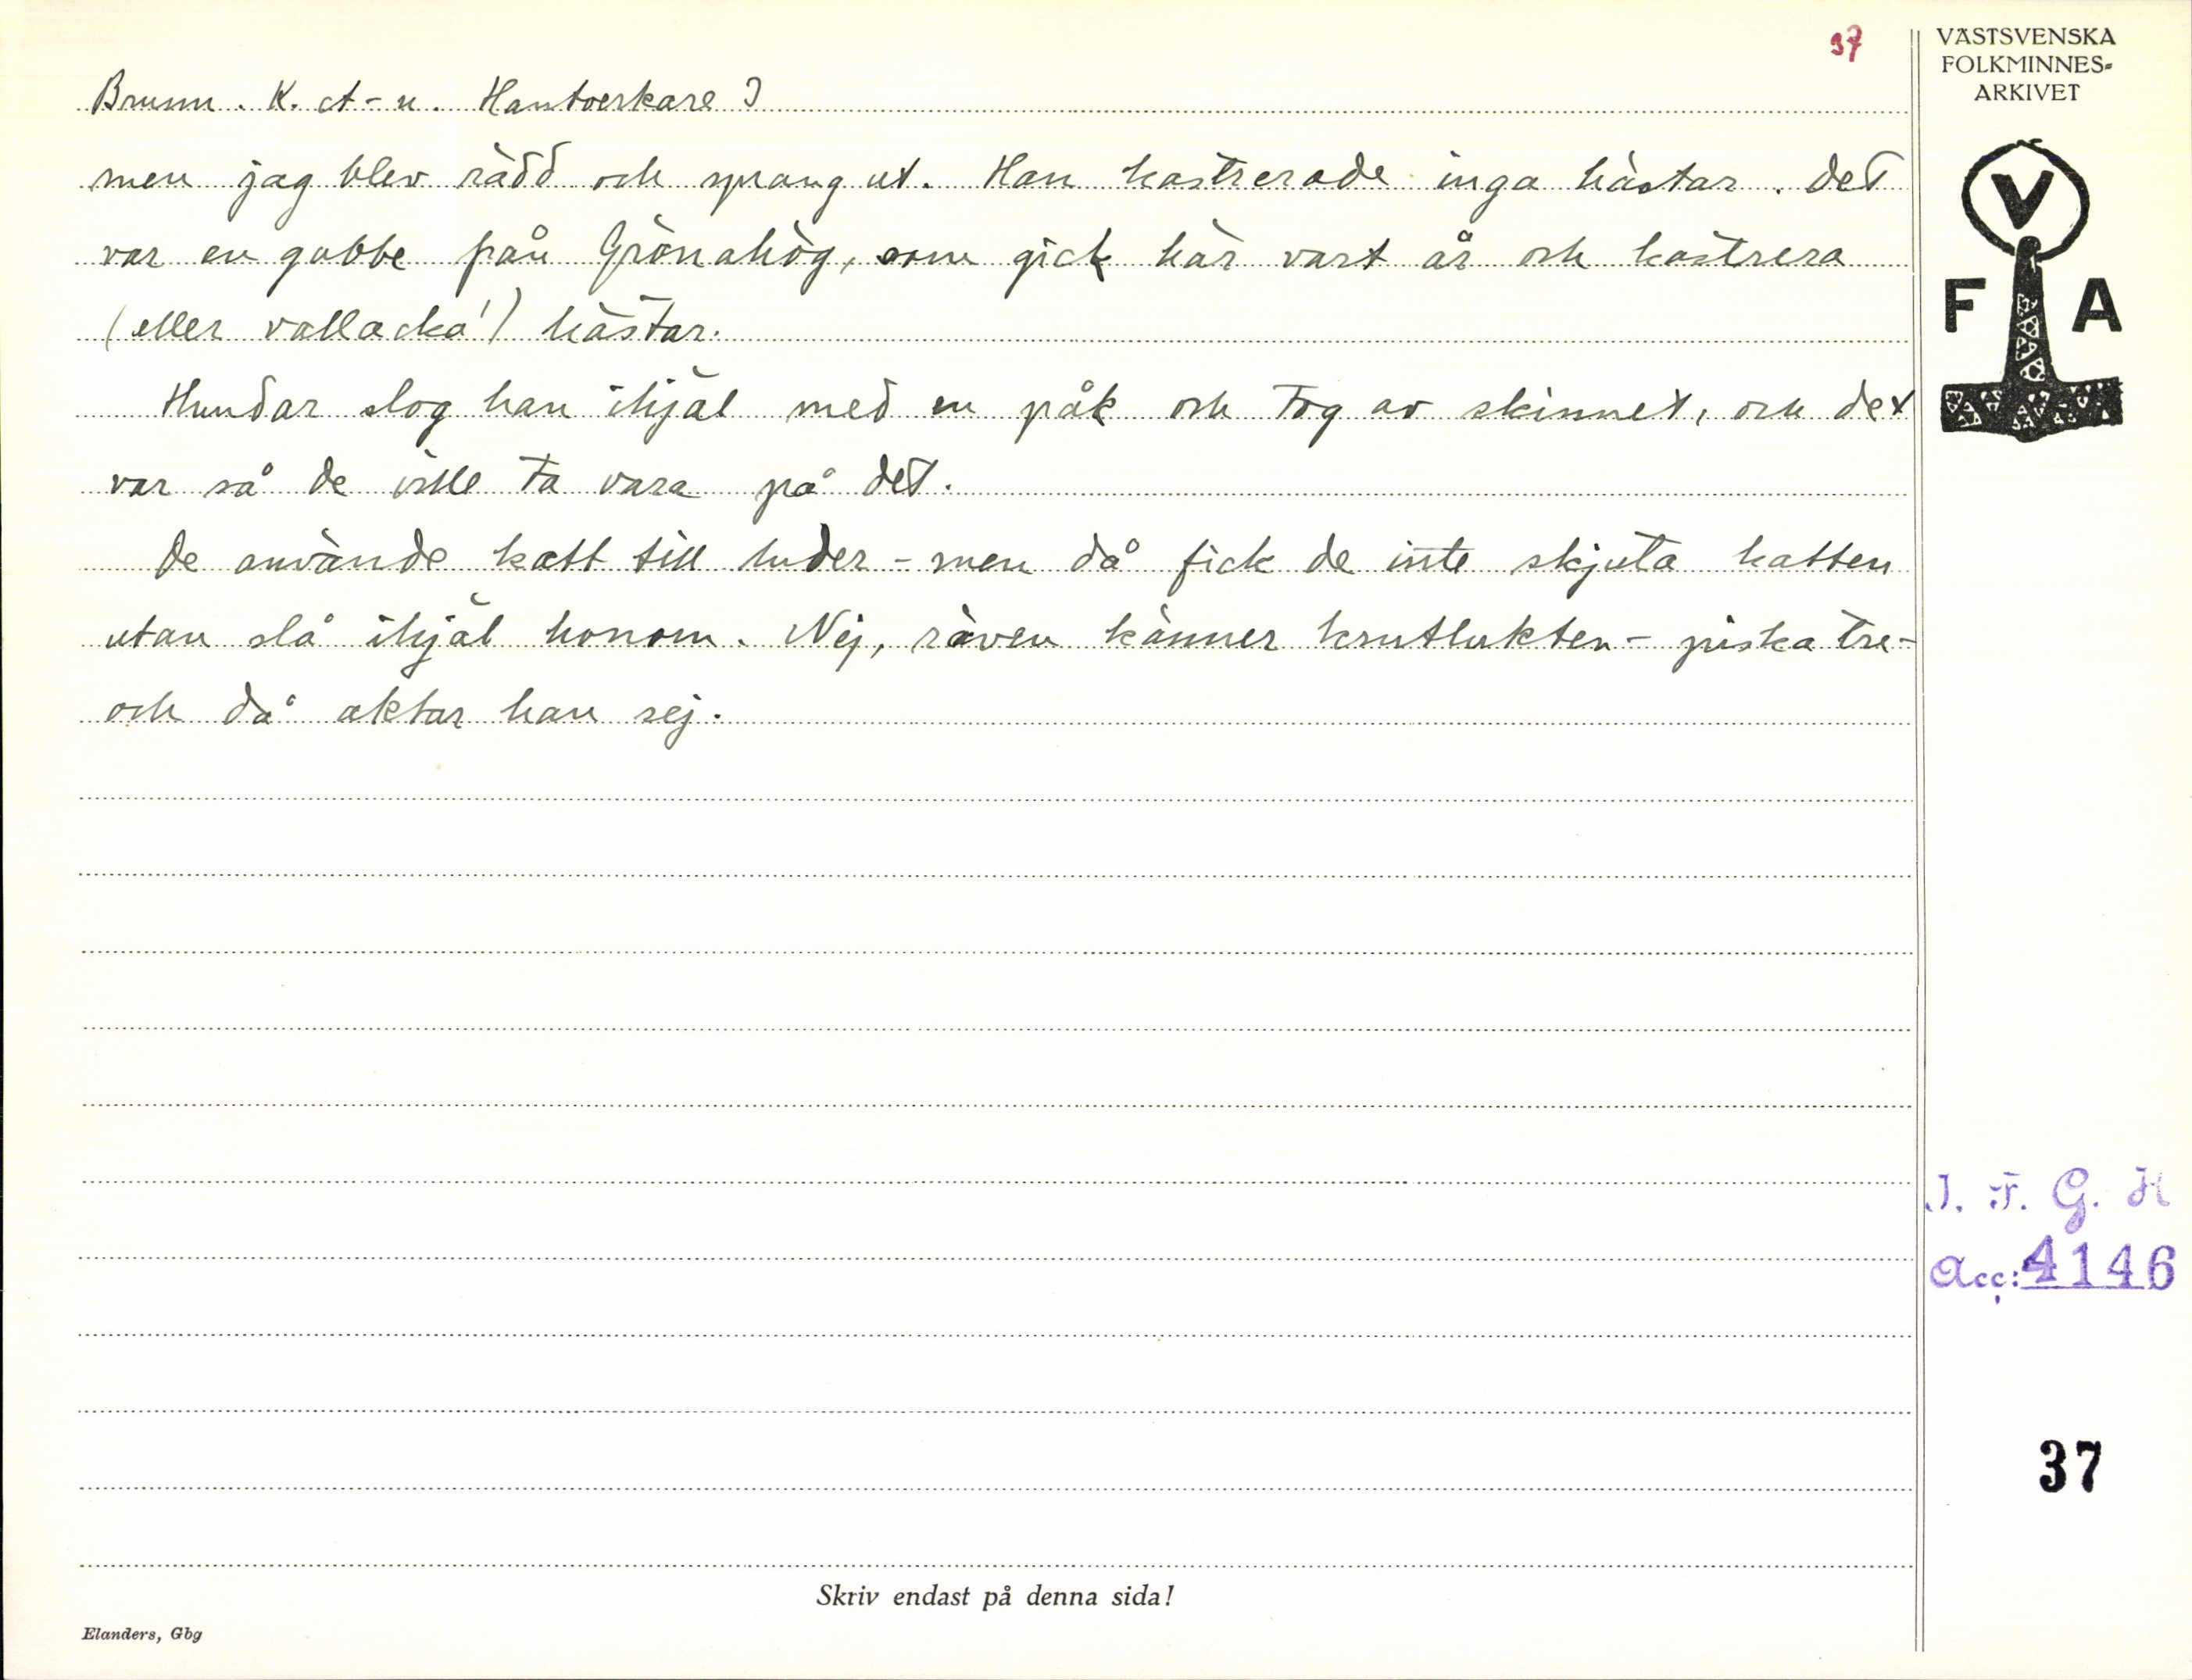 37
Brunn. K. ct-u. Hantverkare I
men jag blev rädd och sprang ut. Han kastrerade inga hästar. Det
var en gubbe från Grönahög, som gick här vart år och kastrera
(eller vallacka') hästar.
Hundar slog han ihjäl med en påk och tog av skinnet, och det
var så de ville ta vara på det.
De använde katt till luder - men då fick de inte skjuta katten
utan slå ihjäl honom. Nej, räven känner krutlukten - piska tre -
och då aktar han sej.
VÄSTSVENSKA
FOLKMINNES-
ARKIVET
V
F A
I. F. G. H
Acc: 4146
37
Skriv endast på denna sida!
Elanders, Gbg